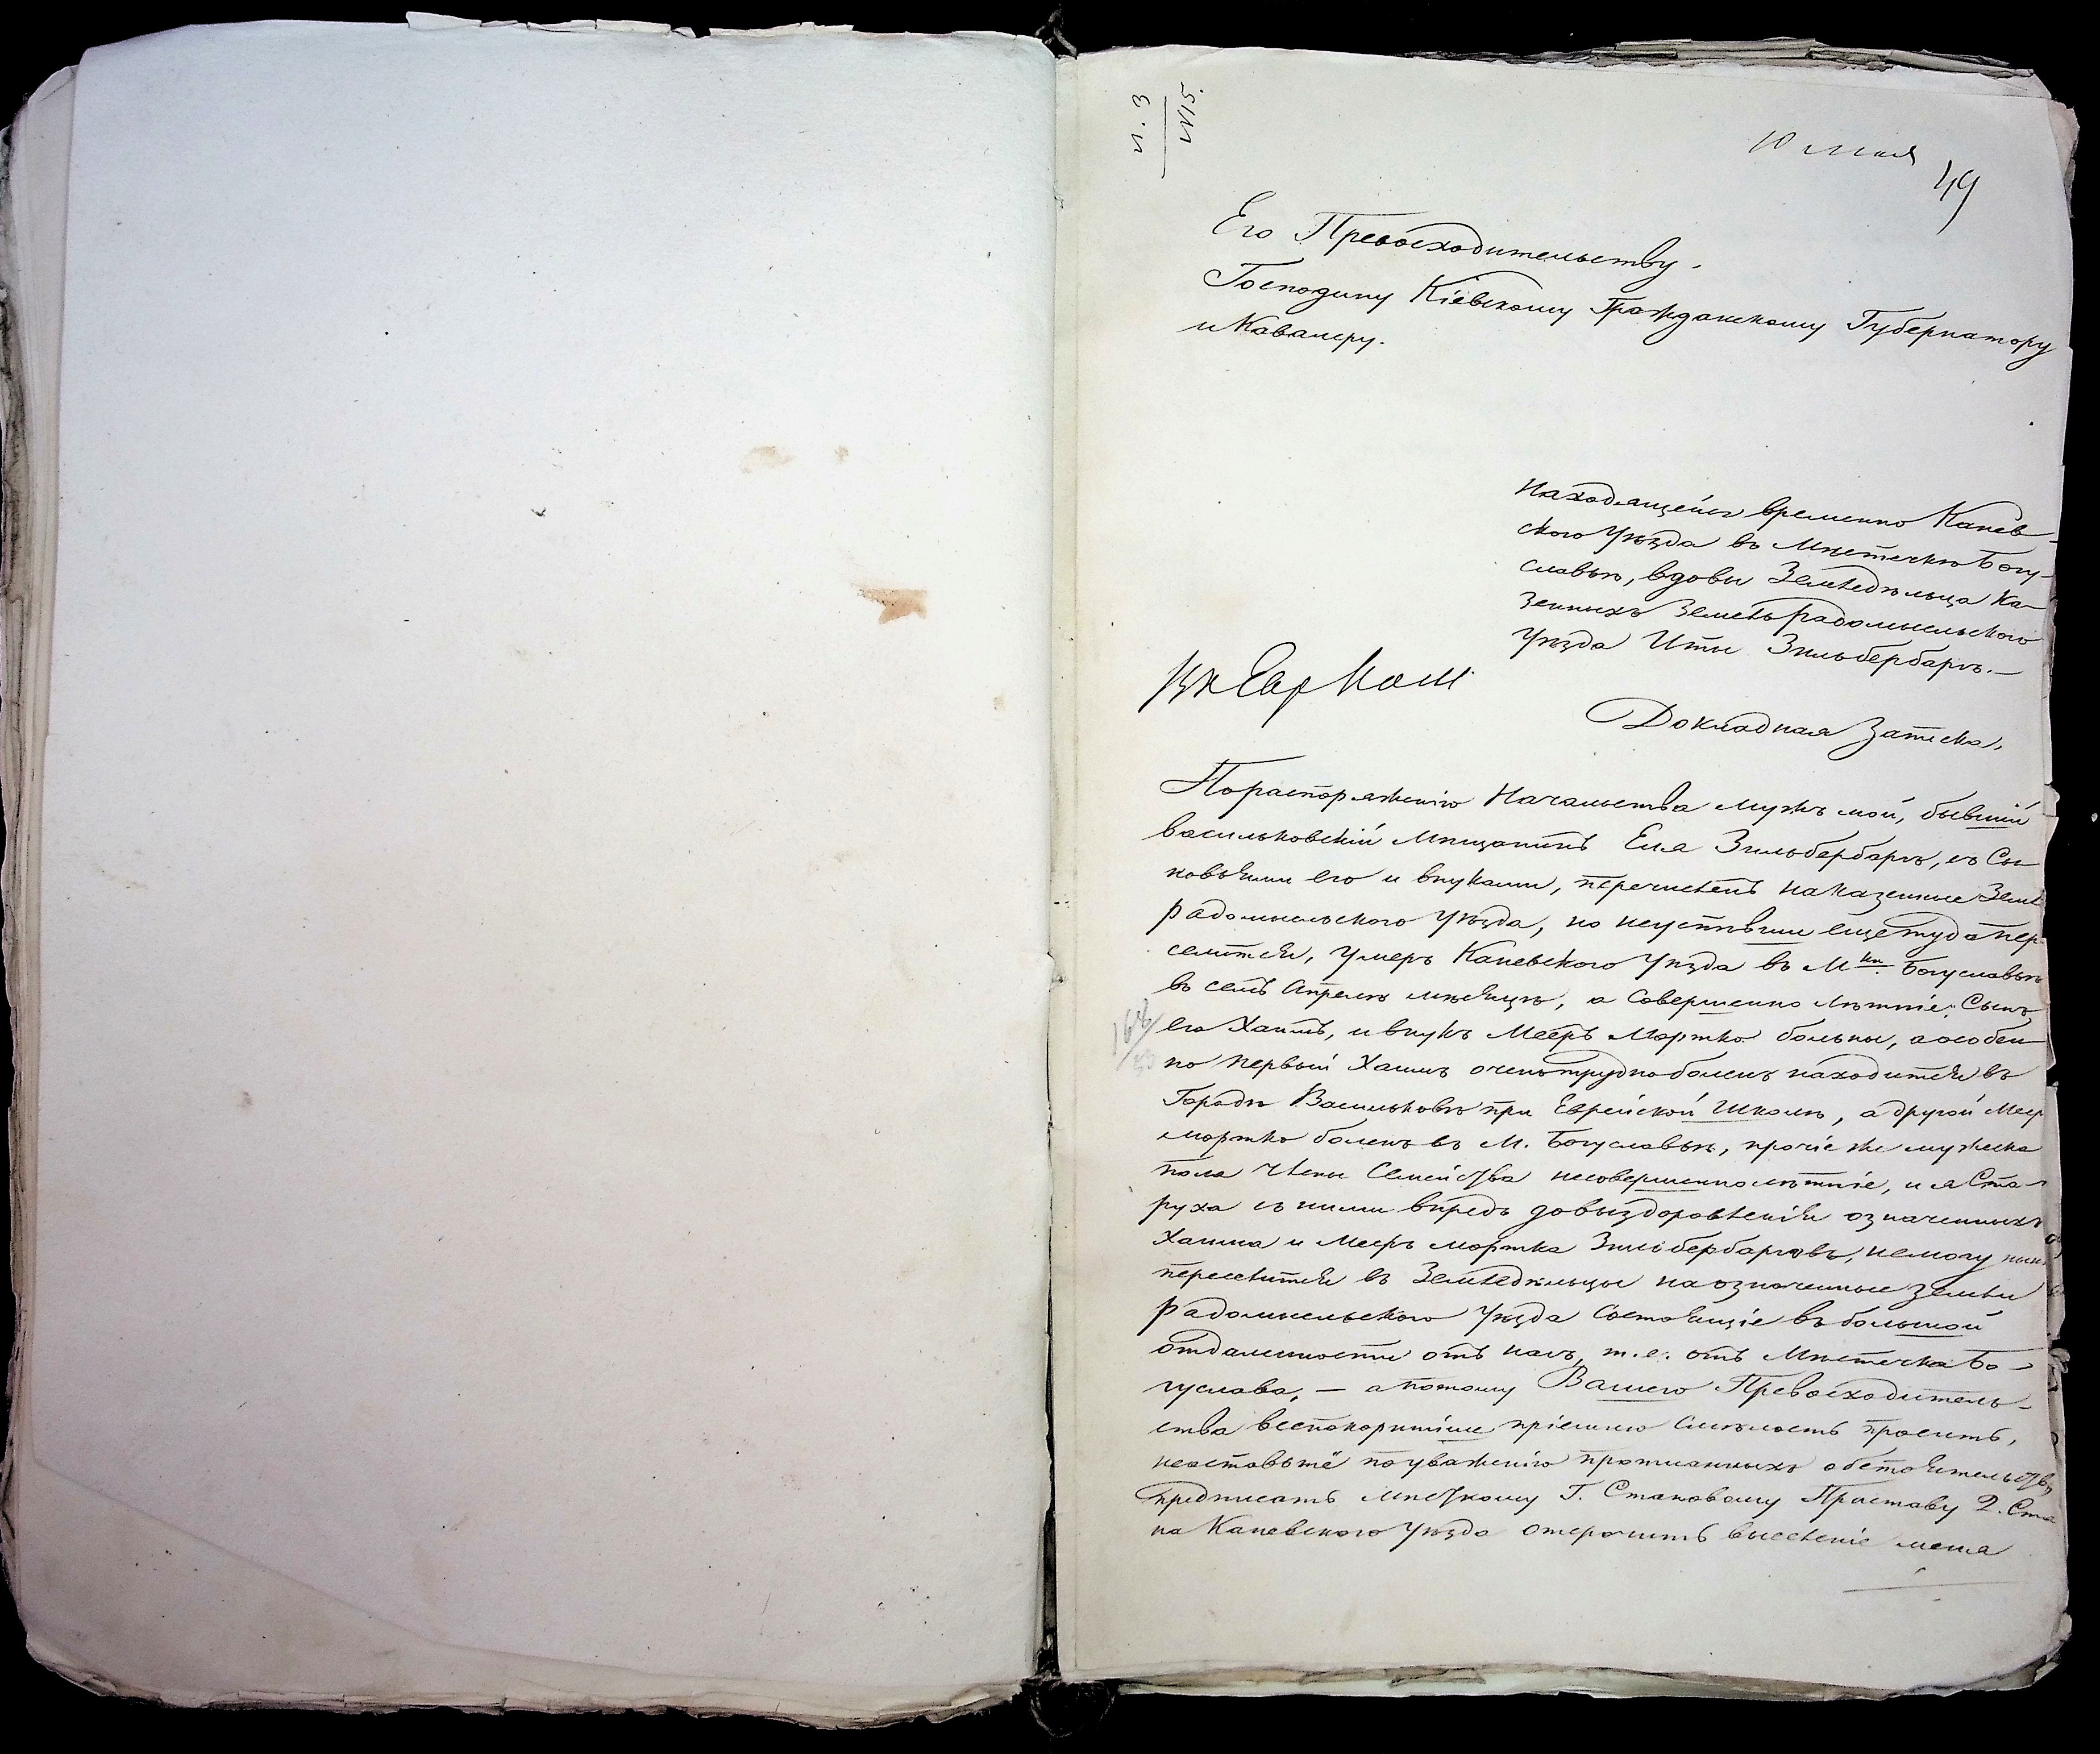 10 мая
49
Его Превосходительству.
Господину Кіевскому Гражданскому Губернатору
и Кавалеру.
Находящейся временно Канев-
ского Уѣзда въ Мѣстечкѣ Богу-
славѣ, вдовы Земледѣльца Ка-
зенныхъ Земель Радомысльского
Уѣзда Иты Зильбербаргъ.—
Докладная Записка.
По распоряженію Начальства мужъ мой, бывшій
васильковскій Мѣщанинъ Еля Зильбербаргъ, съ Сы-
новьями его и внуками, перечисленъ на казенные Земли
Радомысльского Уѣзда, но неуспѣвши еще туда пер
селится, умеръ Каневского Уѣзда въ Мкѣ Богуславѣ
въ семъ Апрелѣ мѣсяцѣ, а Совершенно лѣтніе: Сынъ
его Хаимъ, и внукъ Мееръ Мортко больны, а особен
но первый Хаимъ очень трудно боленъ находится въ
Городѣ Васильковѣ при Еврейской Школѣ, а другой Меер
мортко боленъ въ М. Богуславѣ, прочіе же мужеска
пола члены Семейства несовершеннолѣтніе, и я Ста-
руха съ ними впредь до выздоровленія означенныхъ
Хаима и Мееръ мортка Зильбербарговъ, немогу нынѣ
переселится въ Земледѣльцы на означенные земли
Радомысльского Уѣзда Состоящіе въ большой
отдаленности отъ насъ, т.е. отъ Мѣстечка Бо-
гуслава, — а потому Вашего Превосходитель-
ства всепокорнѣйше пріемлю смѣлость просить,
неоставьте поуваженію прописанныхъ обстоятельствъ
предписать мѣстному Г. Становому Приставу 2. Ста
на Каневского Уѣзда отсрочить выселеніе меня